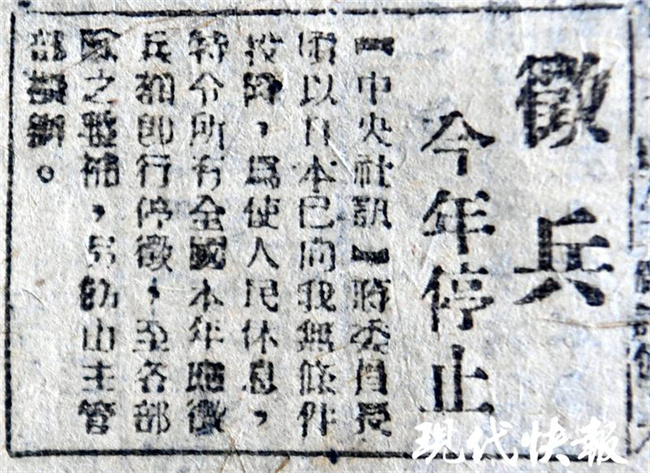 徵兵
今年停止
【中央社訊】蔣委員長
頃以日本已向我無條件
投降，為使人民休息，
特令所有全國本年應徵
兵額即行停徵，至各部
隊之戰補，另飭由主管
部擬辦。
现代快报